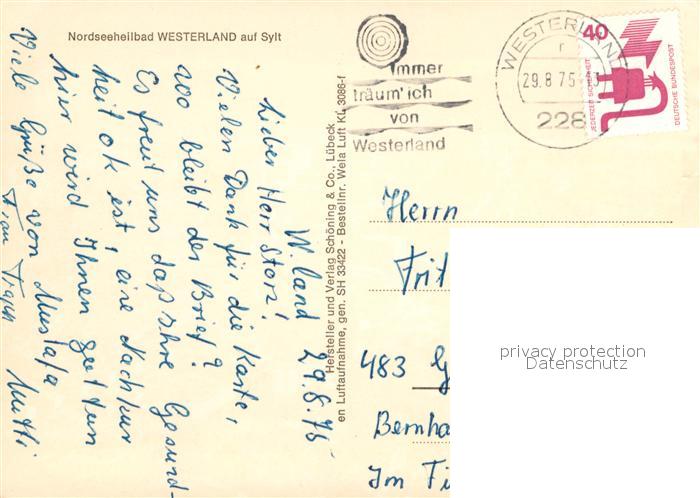 Nordseeheilbad WESTERLAND auf Sylt
W.land 29.8.75
Lieber Herr Storz!
Vielen Dank für die Karte,
wo bleibt der Brief?
Es freut uns daß Ihre Gesund-
heit ok ist, eine Nachkur
hier wird Ihnen gut tun
Viele Grüße von Mustafa
Frau Mutti
Hersteller und Verlag Schöning & Co., Lübeck
en Luftaufnahme, gen. SH 33422 - Bestellnr. Wela Luft KL 3086-f
Immer
träum' ich
von
Westerland
WESTERLAND
r
29.8.75
228
40
JEDERZEIT SICHERHEIT
DEUTSCHE BUNDESPOST
Herrn
Frit
483 G
Bernha
Im Fi
privacy protection
Datenschutz